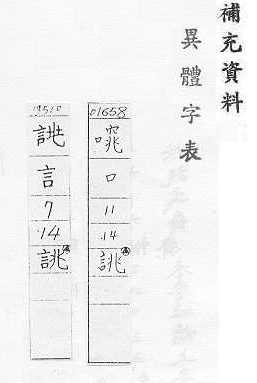 補充資料
異體字表
01658
口
11
14
誂
言
7
14
誂